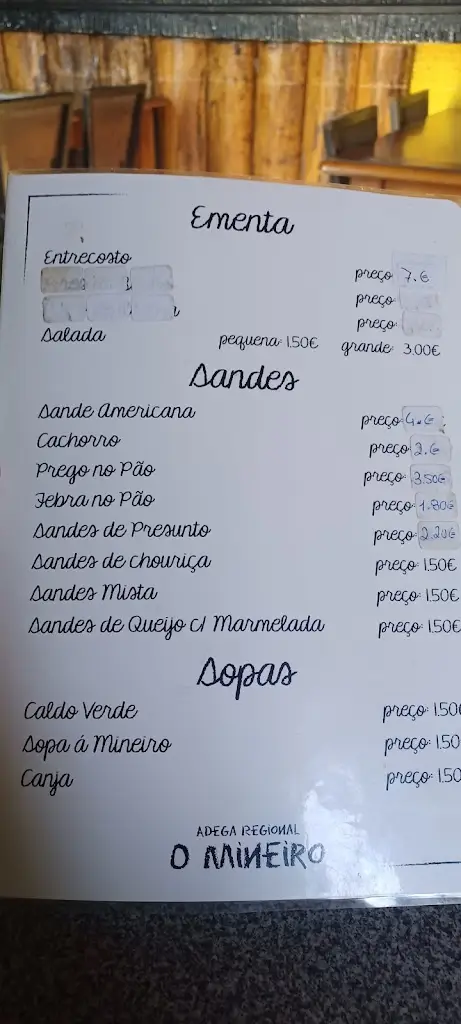 Ementa
Entrecosto preço 7.€
preço
preço
Salada pequena 1.50€ grande: 3.00€
Sandes
Sande Americana preço 4.€
Cachorro preço 2.€
Prego no Pão preço 3.50€
Febra no Pão preço 1.80€
Sandes de Presunto preço 2.20€
Sandes de chouriça preço: 1.50€
Sandes Mista preço: 1.50€
Sandes de Queijo c/ Marmelada preço: 1.50€
Sopas
Caldo Verde preço: 1.50€
Sopa á Mineiro preço: 1.50
Canja preço: 1.50
ADEGA REGIONAL
O MINEIRO